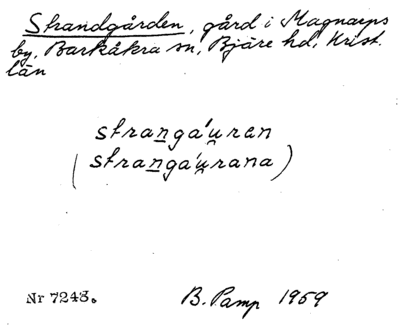 Strandgården, gård i Magnarps
by, Barkåkra sn, Bjäre hd, Krist.
län
stran̲gá'u̯ren
(stran̲gá'u̯rana)
Nr 7243.
B. Pamp 1959